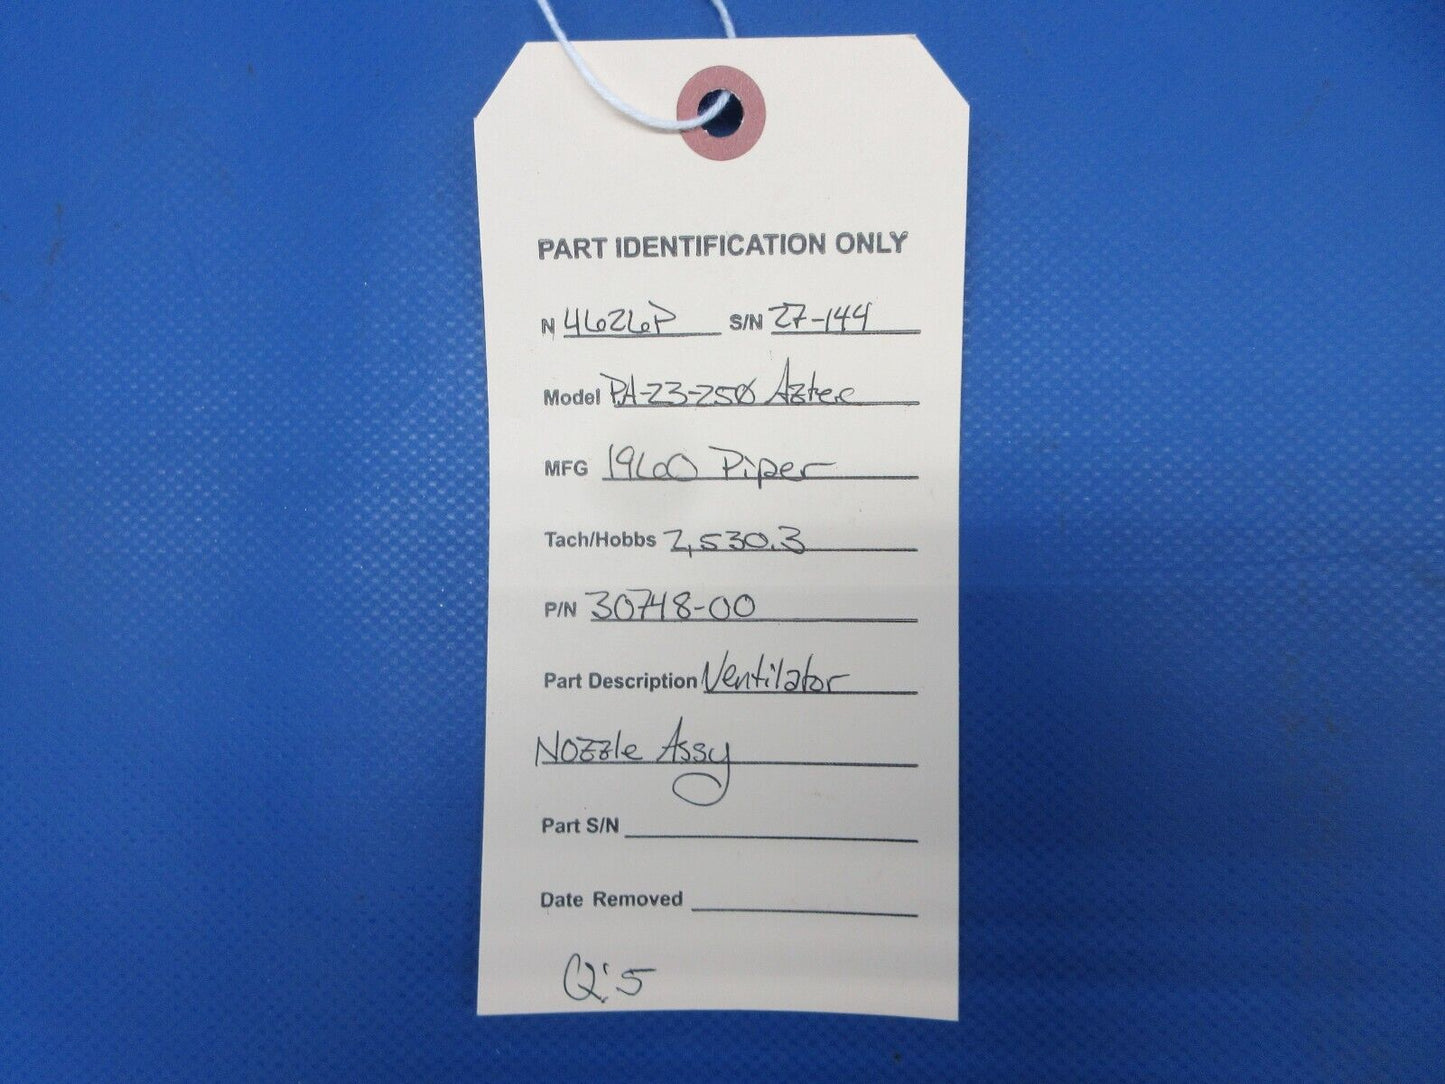 PART IDENTIFICATION ONLY
N 4626P S/N 27-144
Model PA-23-250 Aztec
MFG 1960 Piper
Tach/Hobbs 2,530.3
P/N 30748-00
Part Description Ventilator
Nozzle Assy
Part S/N
Date Removed
Q:5